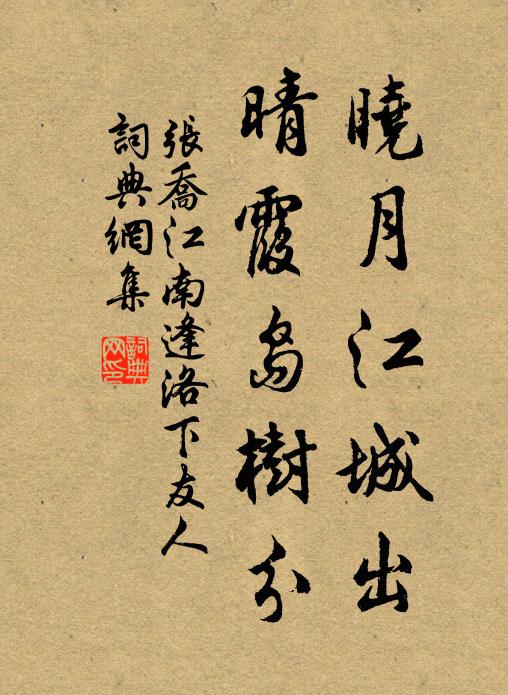 曉月江城出
晴霞島樹分
張喬江南逢洛下友人
詞典網集
詞典网印